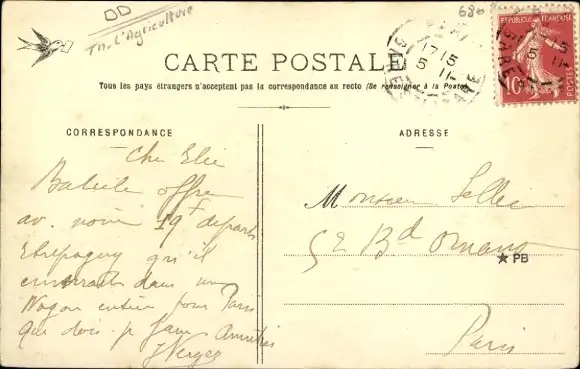 DD
Th. l'Agriculture
686
CARTE POSTALE
Tous les pays étrangers n'acceptent pas la correspondance au recto (Se renseigner à la Poste)
RÉPUBLIQUE FRANÇAISE
10
17 15
5 11
GARE
CORRESPONDANCE
ADRESSE
Cher Elie
offre
av. noire 19f départ
Etrepagny qu'il
dans un
Wagon entier pour Paris
que dois je faire Amitiés
Monsieur
52 Bd Ornano
★ PB
Paris